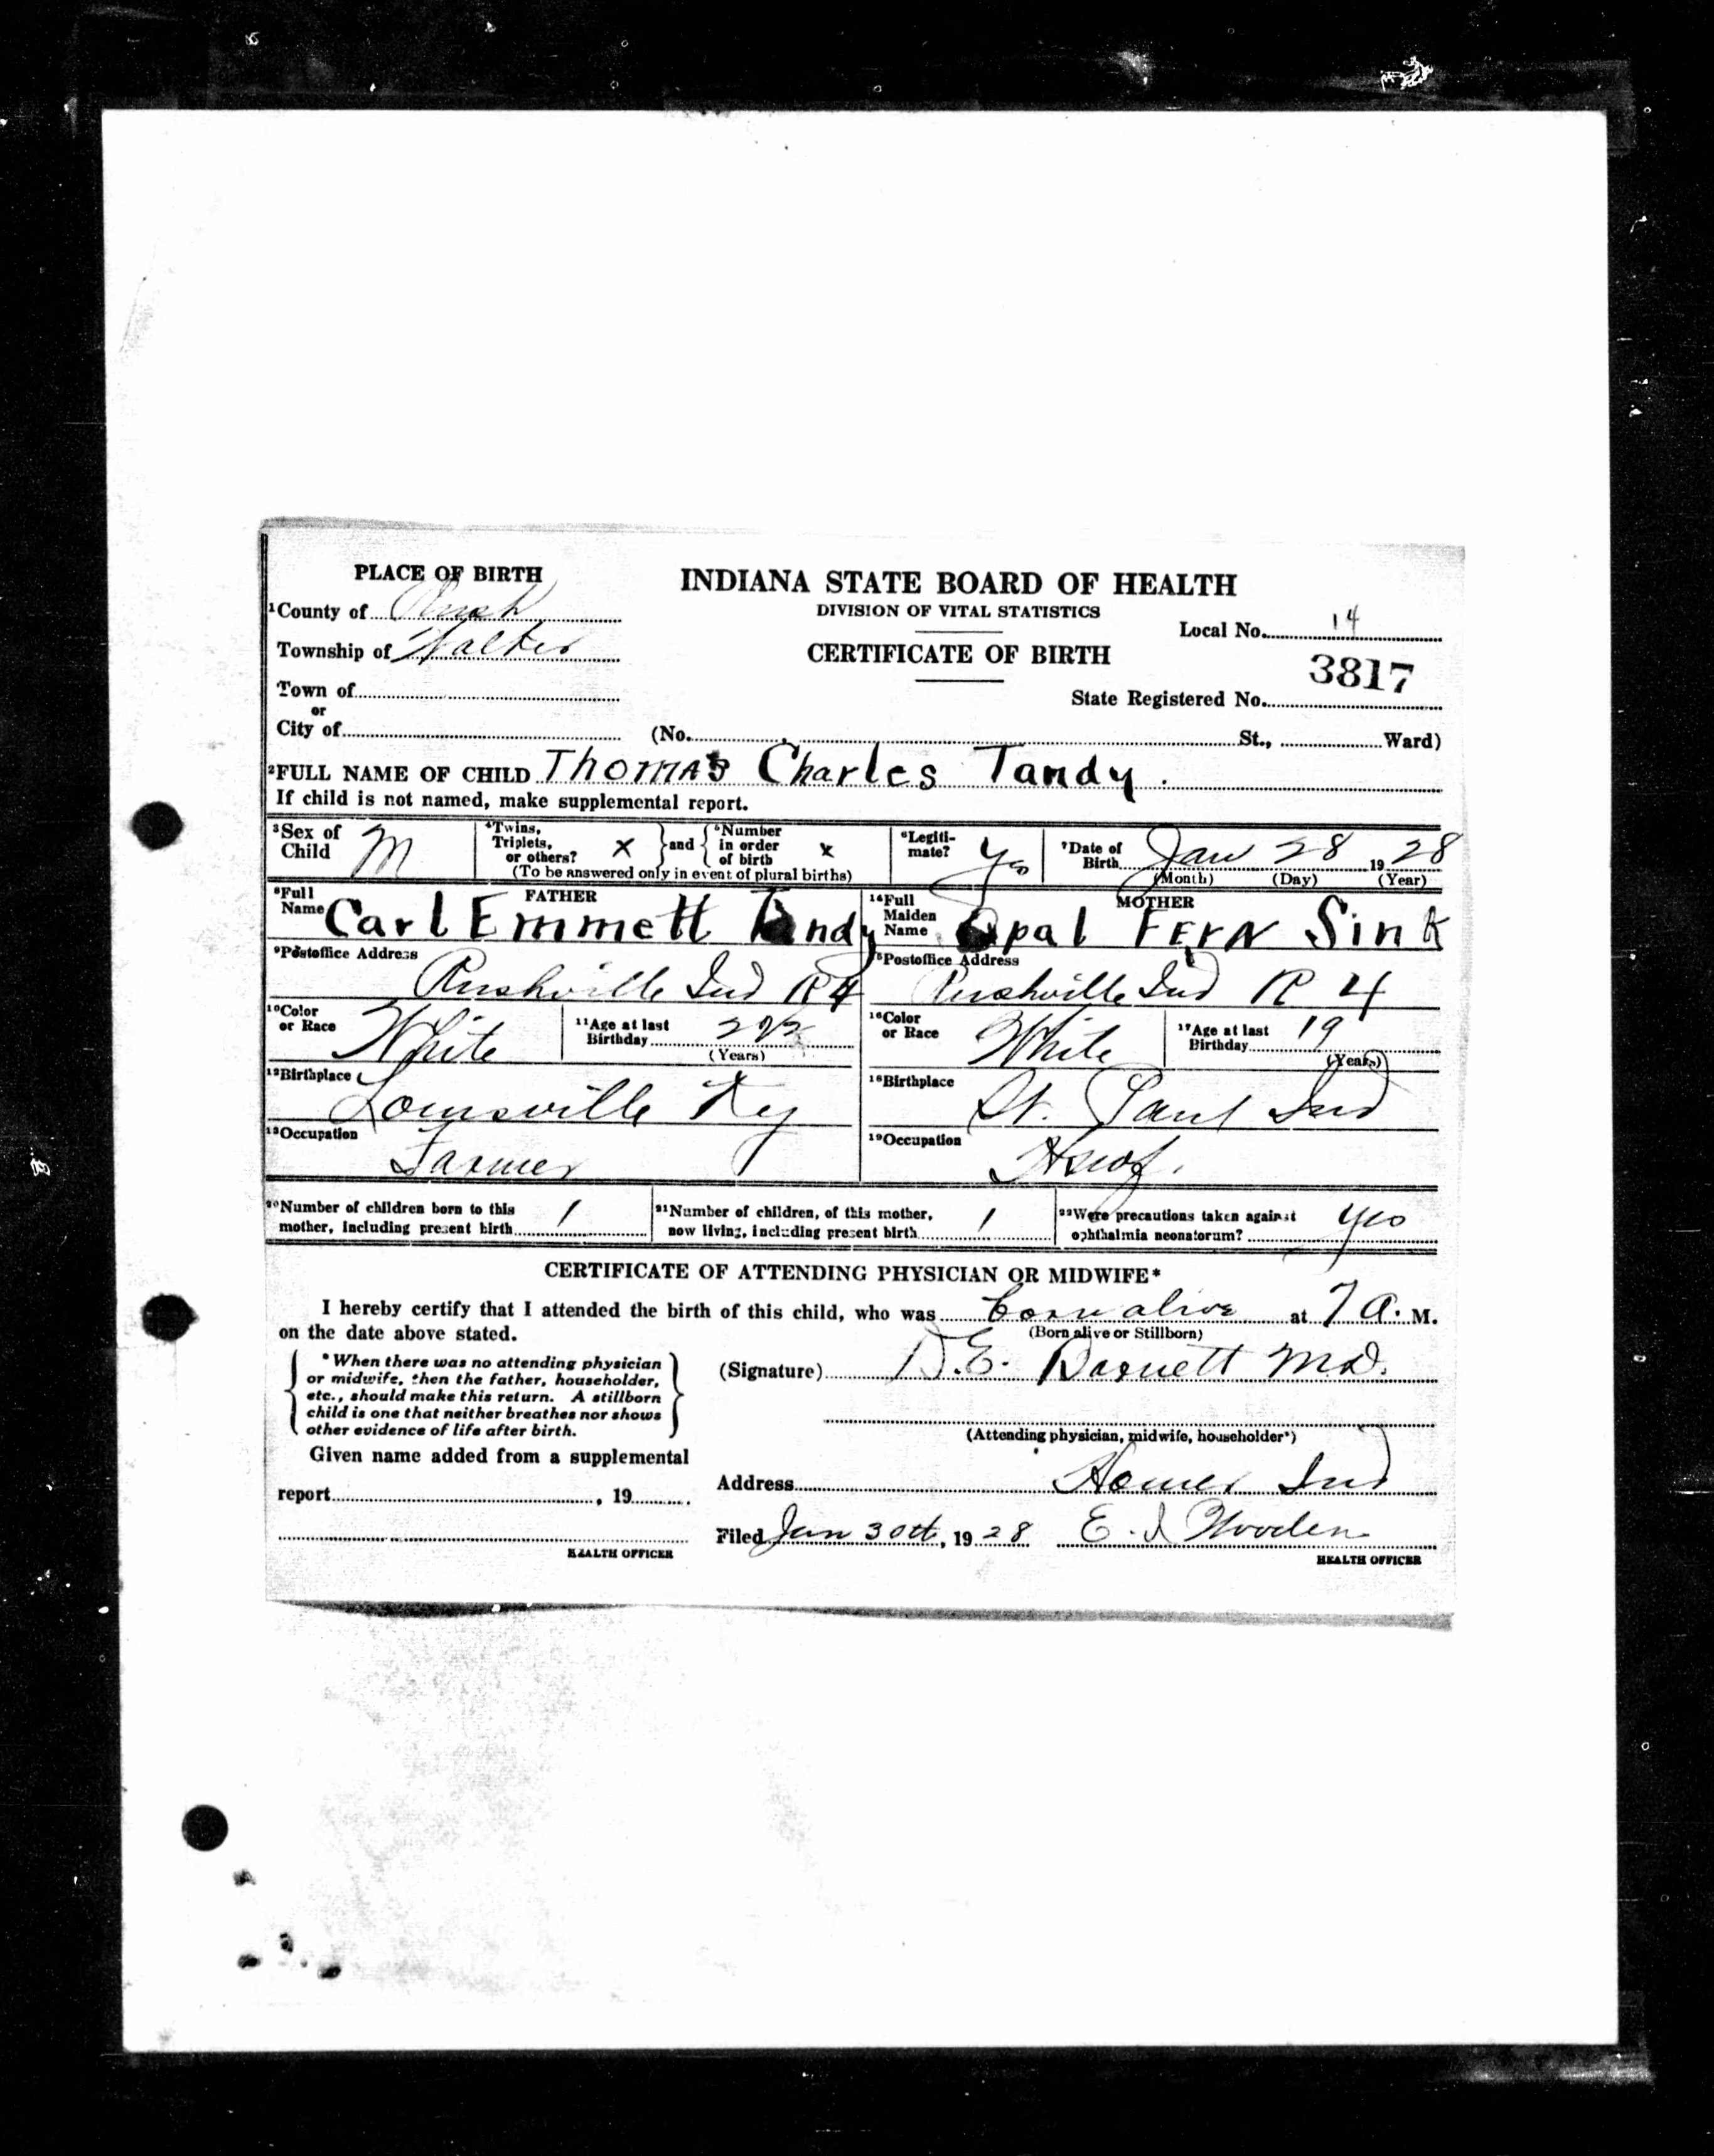 PLACE OF BIRTH
INDIANA STATE BOARD OF HEALTH
DIVISION OF VITAL STATISTICS
CERTIFICATE OF BIRTH
1 County of Rush
Township of Walker
Town of
or
City of
Local No. 14
State Registered No. 3817
(No. , St., Ward)
2 FULL NAME OF CHILD Thomas Charles Tandy.
If child is not named, make supplemental report.
3 Sex of Child M
4 Twins, Triplets, or others? x and 5 Number in order of birth x
(To be answered only in event of plural births)
6 Legitimate? Yes
7 Date of Birth Jan 28 1928
(Month) (Day) (Year)
FATHER
8 Full Name Carl Emmett Tandy
9 Postoffice Address
Rushville Ind R4
10 Color or Race White
11 Age at last Birthday
(Years)
12 Birthplace
Louisville Ky
13 Occupation
Farmer
MOTHER
14 Full Maiden Name Opal Fern Sink
15 Postoffice Address
Rushville Ind R 4
16 Color or Race White
17 Age at last Birthday 19
(Years)
18 Birthplace
St. Paul Ind
19 Occupation
20 Number of children born to this mother, including present birth 1
21 Number of children, of this mother, now living, including present birth 1
22 Were precautions taken against ophthalmia neonatorum? yes
CERTIFICATE OF ATTENDING PHYSICIAN OR MIDWIFE*
I hereby certify that I attended the birth of this child, who was born alive at 7 A. M.
on the date above stated.
(Born alive or Stillborn)
* When there was no attending physician
or midwife, then the father, householder,
etc., should make this return. A stillborn
child is one that neither breathes nor shows
other evidence of life after birth.
(Signature) D.E. Barnett M.D.
(Attending physician, midwife, householder*)
Given name added from a supplemental
report , 19
HEALTH OFFICER
Address Homer Ind
Filed Jan 30th, 1928 E. I Wooden
HEALTH OFFICER